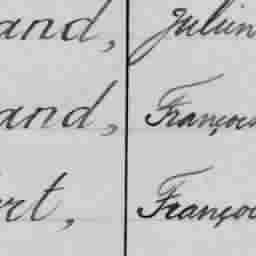 and, Julien
and, François
rt, Françoi